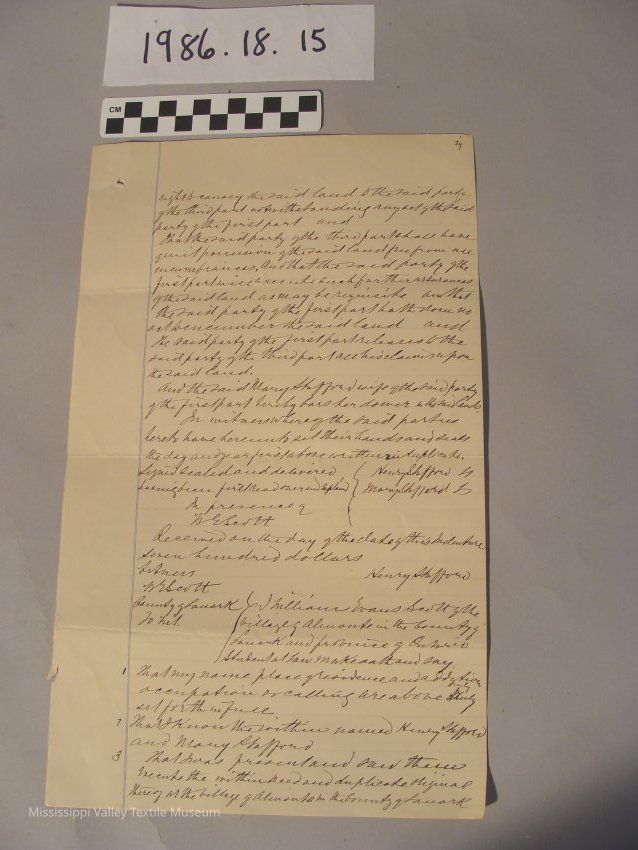 1986.18.15
CM
right to convey the said land to the said party
of the third part notwithstanding any act of the said
party of the first part and
That the said party of the third part shall have
quiet possession of the said land free from all
incumbrances, And that the said party of the
first part will execute such further assurances
of the said land as may be requisite and that
the said party of the first part hath done no
act to encumber the said land and
the said party of the first part releases to the
said party of the third part all his claims upon
the said land.
And the said Mary Stafford wife of the said party
of the first part hereby bars her dower in the said lands.
In witness whereof the said parties
hereto have hereunto set their hands and seals
the day and year first above written in duplicate.
Signed sealed and delivered Henry Stafford
having been first read over and Mary Stafford
In presence of
W E Scott
Received on the day of the date of this Indenture
Seven hundred dollars
Witness Henry Stafford
W E Scott
County of Lanark I William Evans Scott of the
To Wit. Village of Almonte in the County of
Lanark and province of Ontario
Student at law make oath and say,
1 That my name place of residence and
occupation or calling are above truly
set forth in full
2 That I know the within named Henry Stafford
and Mary Stafford
3 That I was present and saw them
execute the within deed and duplicate original
thereof at the Village of Almonte in the County of Lanark
Mississippi Valley Textile Museum